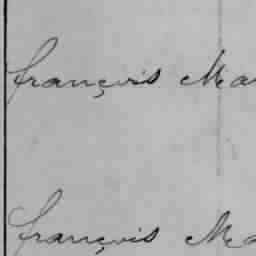 françois Ma
françois Ma